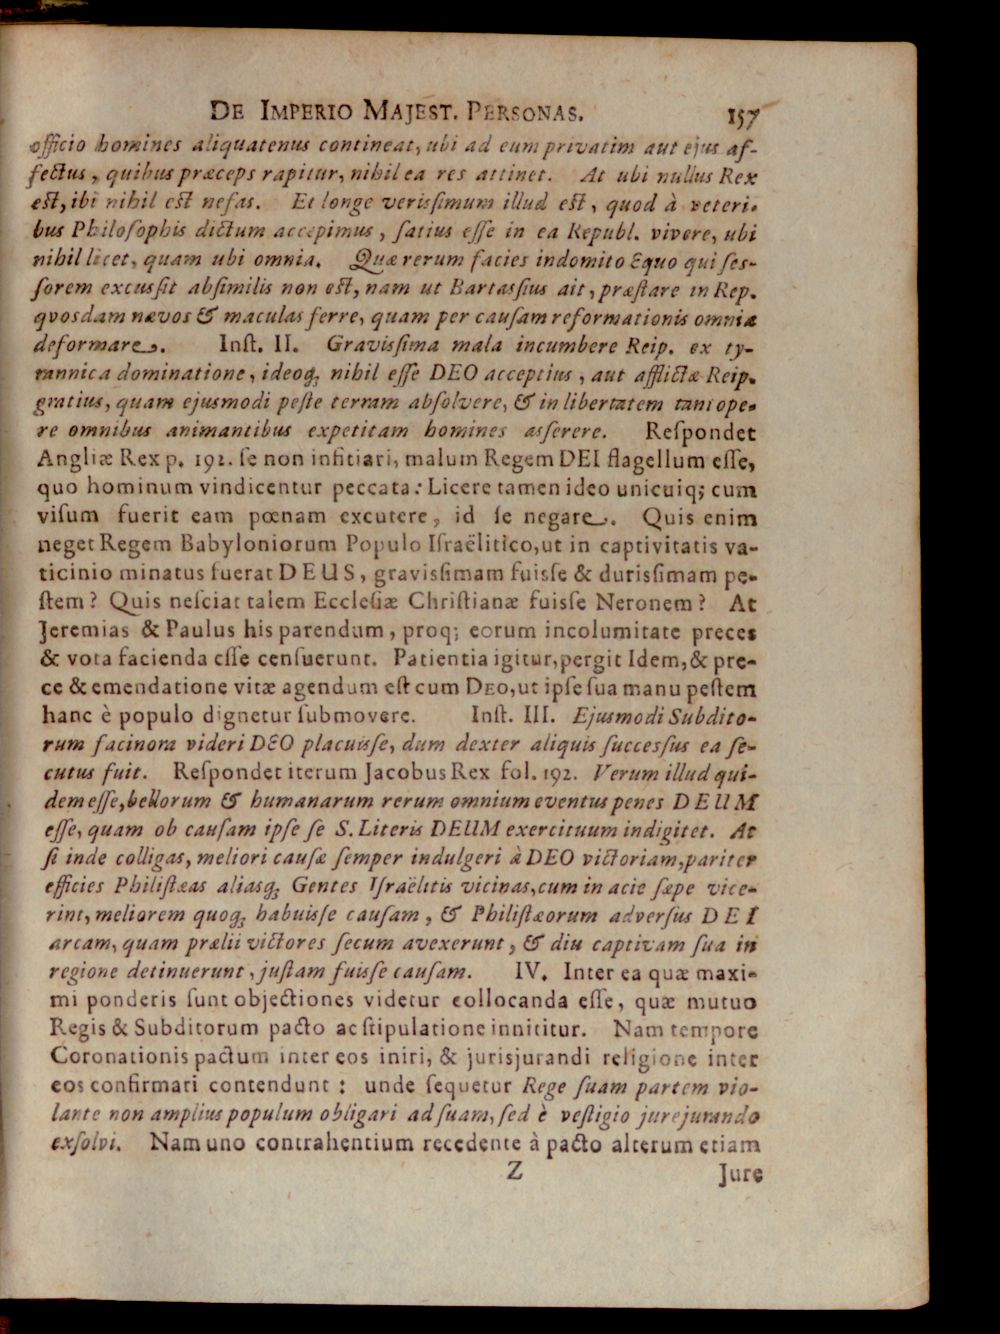 DE IMPERIO MAJEST. PERSONAS. 157
officio homines aliquatenus contineat, ubi ad eum privatim aut ejus af-
fectus, quibus præceps rapitur, nihil ea res attinet. At ubi nullus Rex
est, ibi nihil est nefas. Et longe verissimum illud est, quod à veteri-
bus Philosophis dictum accepimus, satius esse in ea Republ. vivere, ubi
nihil licet, quam ubi omnia. Quæ rerum facies indomito Equo qui ses-
sorem excussit absimilis non est, nam ut Bartassius ait, præstare in Rep.
qvosdam nævos & maculas ferre, quam per causam reformationis omnia
deformare. Inst. II. Gravissima mala incumbere Reip. ex ty-
rannica dominatione, ideoq; nihil esse DEO acceptius, aut afflictæ Reip.
gratius, quam ejusmodi peste terram absolvere, & in libertatem tantope-
re omnibus animantibus expetitam homines asserere. Respondet
Angliæ Rex p. 192. se non infitiari, malum Regem DEI flagellum esse,
quo hominum vindicentur peccata: Licere tamen ideo unicuiq; cum
visum fuerit eam pœnam excutere, id se negare. Quis enim
neget Regem Babyloniorum Populo Israëlitico, ut in captivitatis va-
ticinio minatus fuerat DEUS, gravissimam fuisse & durissimam pe-
stem? Quis nesciat talem Ecclesiæ Christianæ fuisse Neronem? At
Jeremias & Paulus his parendum, proq; eorum incolumitate preces
& vota facienda esse censuerunt. Patientia igitur, pergit Idem, & pre-
ce & emendatione vitæ agendum est cum DEO, ut ipse sua manu pestem
hanc è populo dignetur submovere. Inst. III. Ejusmodi Subdito-
rum facinora videri DEO placuisse, dum dexter aliquis successus ea se-
cutus fuit. Respondet iterum Jacobus Rex fol. 192. Verum illud qui-
dem esse, bellorum & humanarum rerum omnium eventus penes DEUM
esse, quam ob causam ipse se S. Literis DEUM exercituum indigitet. At
si inde colligas, meliori causæ semper indulgeri à DEO victoriam, pariter
efficies Philistæas aliasq; Gentes Israëlitis vicinas, cum in acie sæpe vice-
rint, meliorem quoq; habuisse causam, & Philistæorum adversus DEI
arcam, quam prælii victores secum avexerunt, & diu captivam sua in
regione detinuerunt, justam fuisse causam. IV. Inter ea quæ maxi-
mi ponderis sunt objectiones videtur collocanda esse, quæ mutuo
Regis & Subditorum pacto ac stipulatione innititur. Nam tempore
Coronationis pactum inter eos iniri, & jurisjurandi religione inter
eos confirmari contendunt: unde sequetur Rege suam partem vio-
lante non amplius populum obligari ad suam, sed è vestigio jurejurando
exsolvi. Nam uno contrahentium recedente à pacto alterum etiam
Z Jure